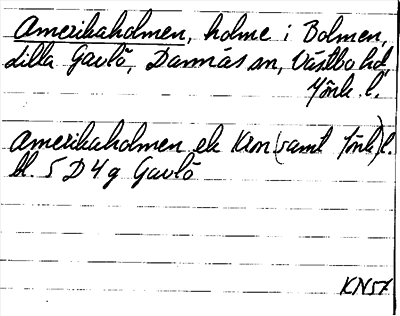 Amerikaholmen, holme i Bolmen,
Lilla Gavlö, Dannäs sn, Västbo hd,
Jönk. l.
Amerikaholmen ek Kron (samt Jönk) l.
bl. 5 D 4 g Gavlö
KN57